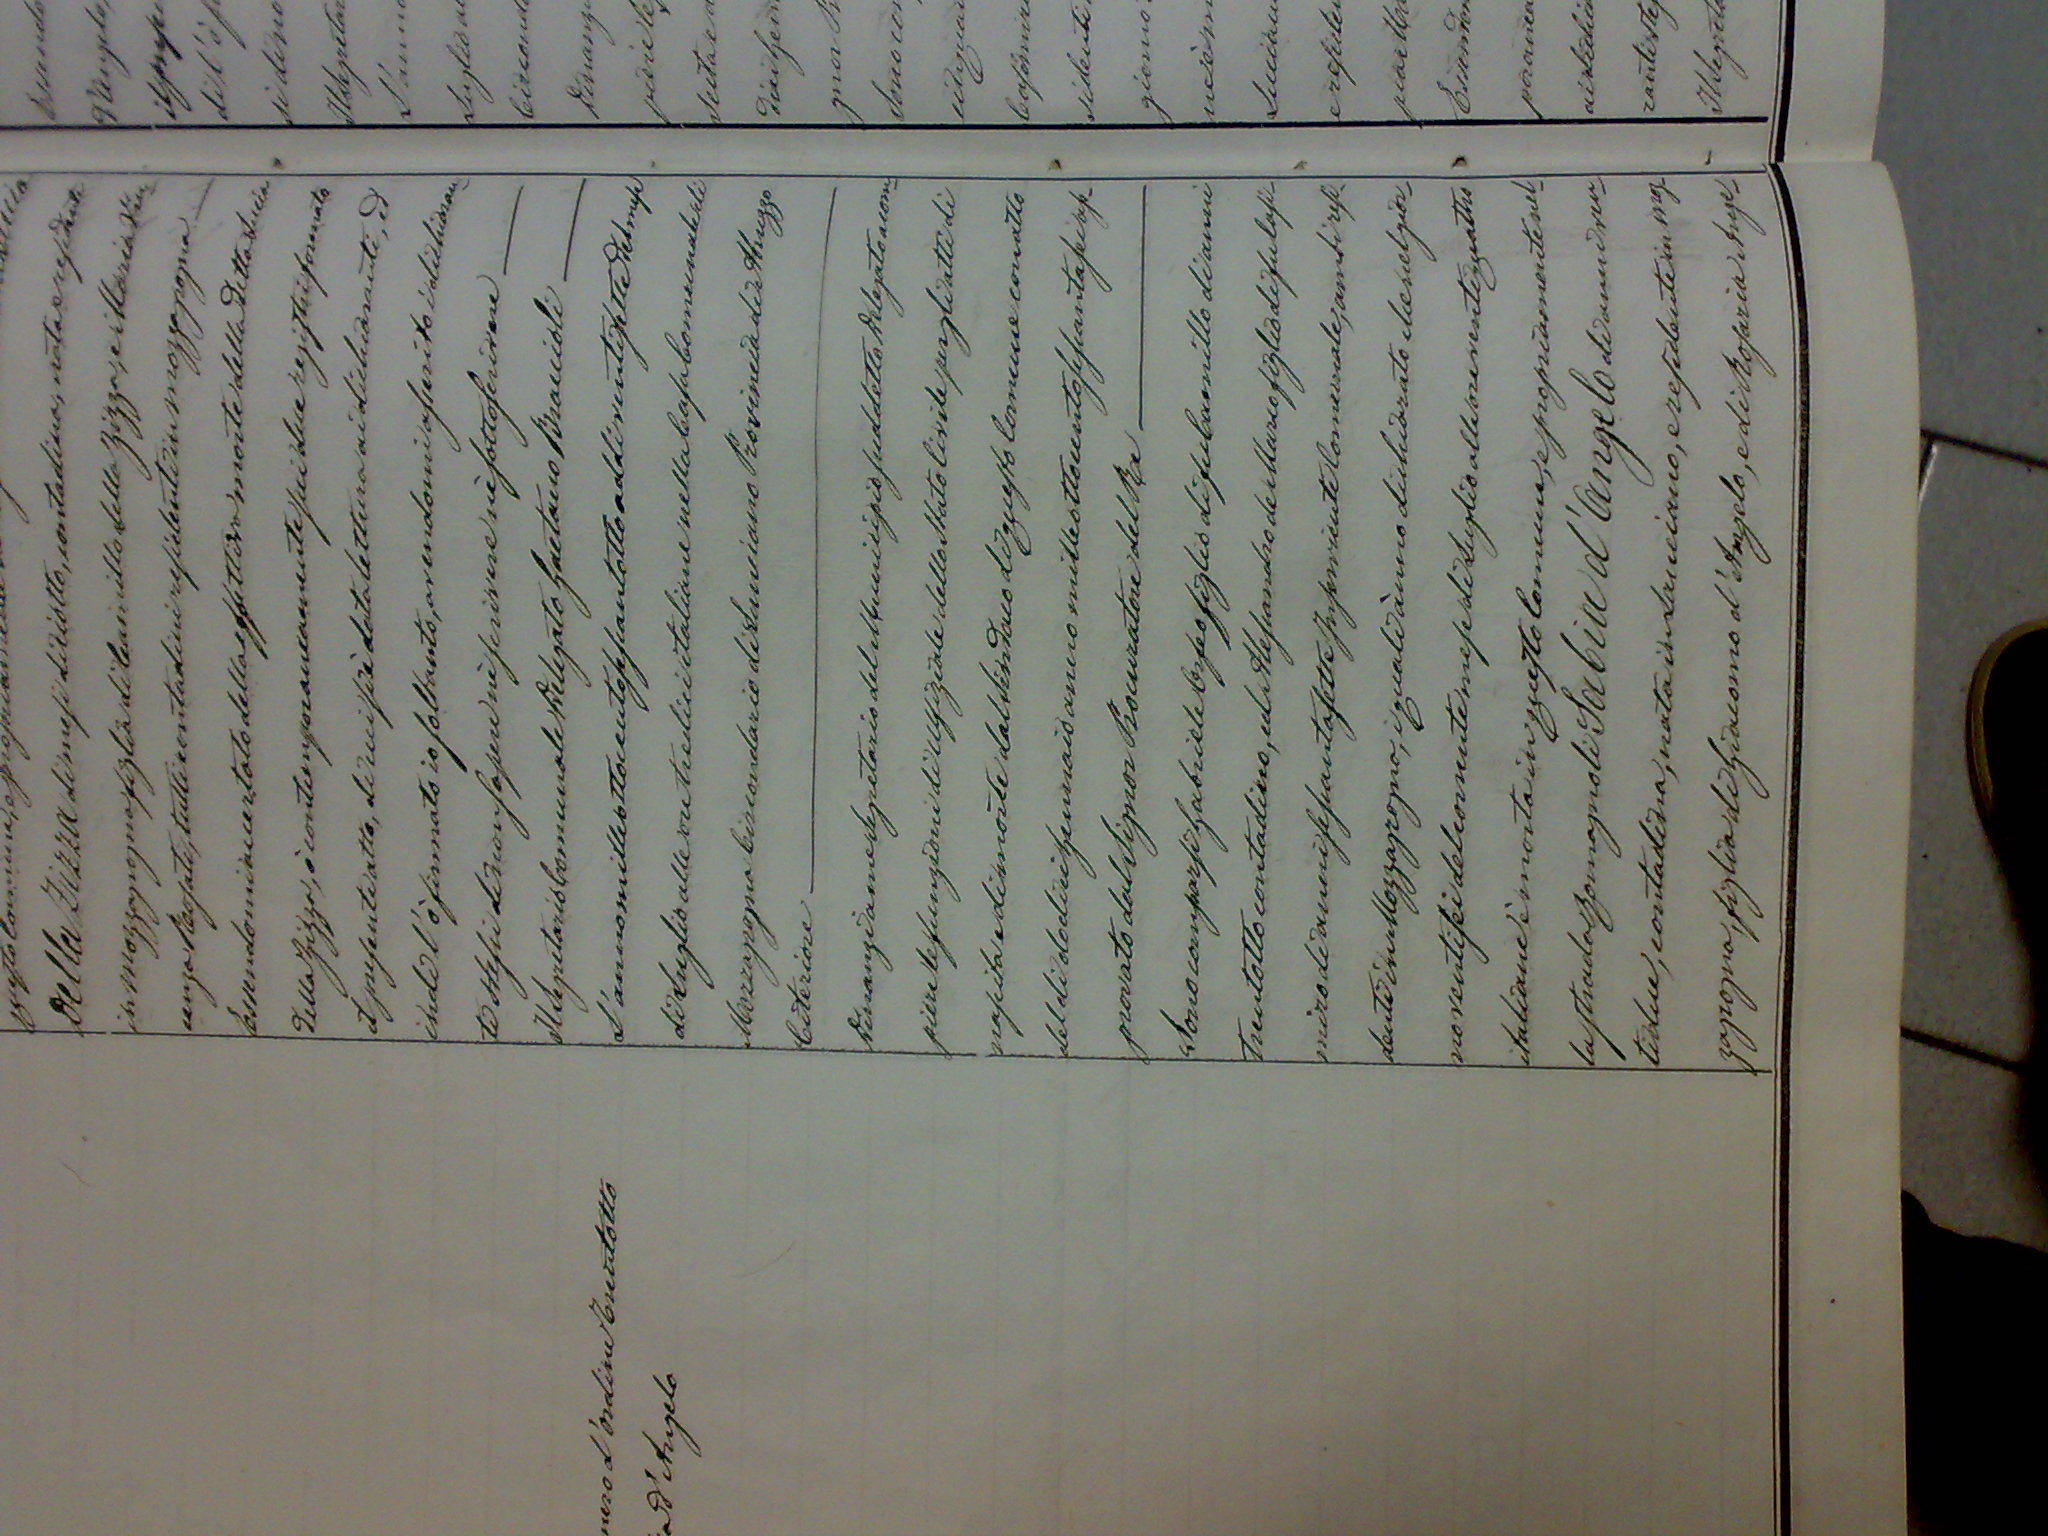 questo Comune, e propriamente
Della Zizza di mesi diciotto, contadina, nata e residente
in Mozzagrogna figlia di Camillo della Zizza, e Maria Vin-
cenza Rosati, tutti contadini residenti in Mozzagrogna
Essendomi accertato della effettiva morte della detta Lucia
Della Zizza, ò contemporaneamente sui due registri formato
il presente atto, di cui si è data lettura ai dichiaranti, ed
indi l'ò firmato io soltanto, avendomi asserito i dichiaran-
ti stessi di non sapere nè scrivere nè sottoscrivere
Il Segretario Comunale Delegato Gaetano Braccioli
mero d'ordine Trentotto
a d'Angelo
L'anno milleottocentosessantotto addi ventisette del mese
di Luglio alle ore tredici italiane nella Casa Comunale di
Mozzagrogna Circondario di Lanciano Provincia di Abruzzo
Citeriore
Dinanzi a me Segretario del Municipio suddetto Delegato a com-
piere le funzioni di Uffiziale dello Stato Civile per gli atti di
nascita e di morte dal Sindaco di questo Comune con atto
del di dodici Gennaio anno milleottocentosessantasei ap-
provato dal Signor Procuratore del Re
Sono comparsi Gabriele Orfeo figlio di fu Camillo di anni
trentotto contadino, ed Alessandro de Marco figlio di fu Casi-
miro di anni sessantasette Inserviente Comunale, ambi resi-
denti in Mozzagrogna, i quali ànno dichiarato che nel gior-
no ventisei del corrente mese di Luglio alle ore ventiquattro
italiane è morta in questo Comune, e propriamente nel-
la strada Romagnoli Sabia d'Angelo di anni ven-
tidue, contadina, nata in Lanciano, e residente in Moz-
zagrogna, figlia di Giacomo d'Angelo, e di Rosaria Ange-
Essendo
d'Angelo,
il prese
di l'ò fi
si di no
Il Segretar
L'anno
Luglio al
Circond
Dinanzi
piere le f
scita e d
dici Genn
gnor Pr
Sono com
cinquan
Casimiro
sidenti
giorno
ne è m
Lucian
e residen
pia e Ma
Essendom
poranea
ai dichia
ranti stes
Il Segreta